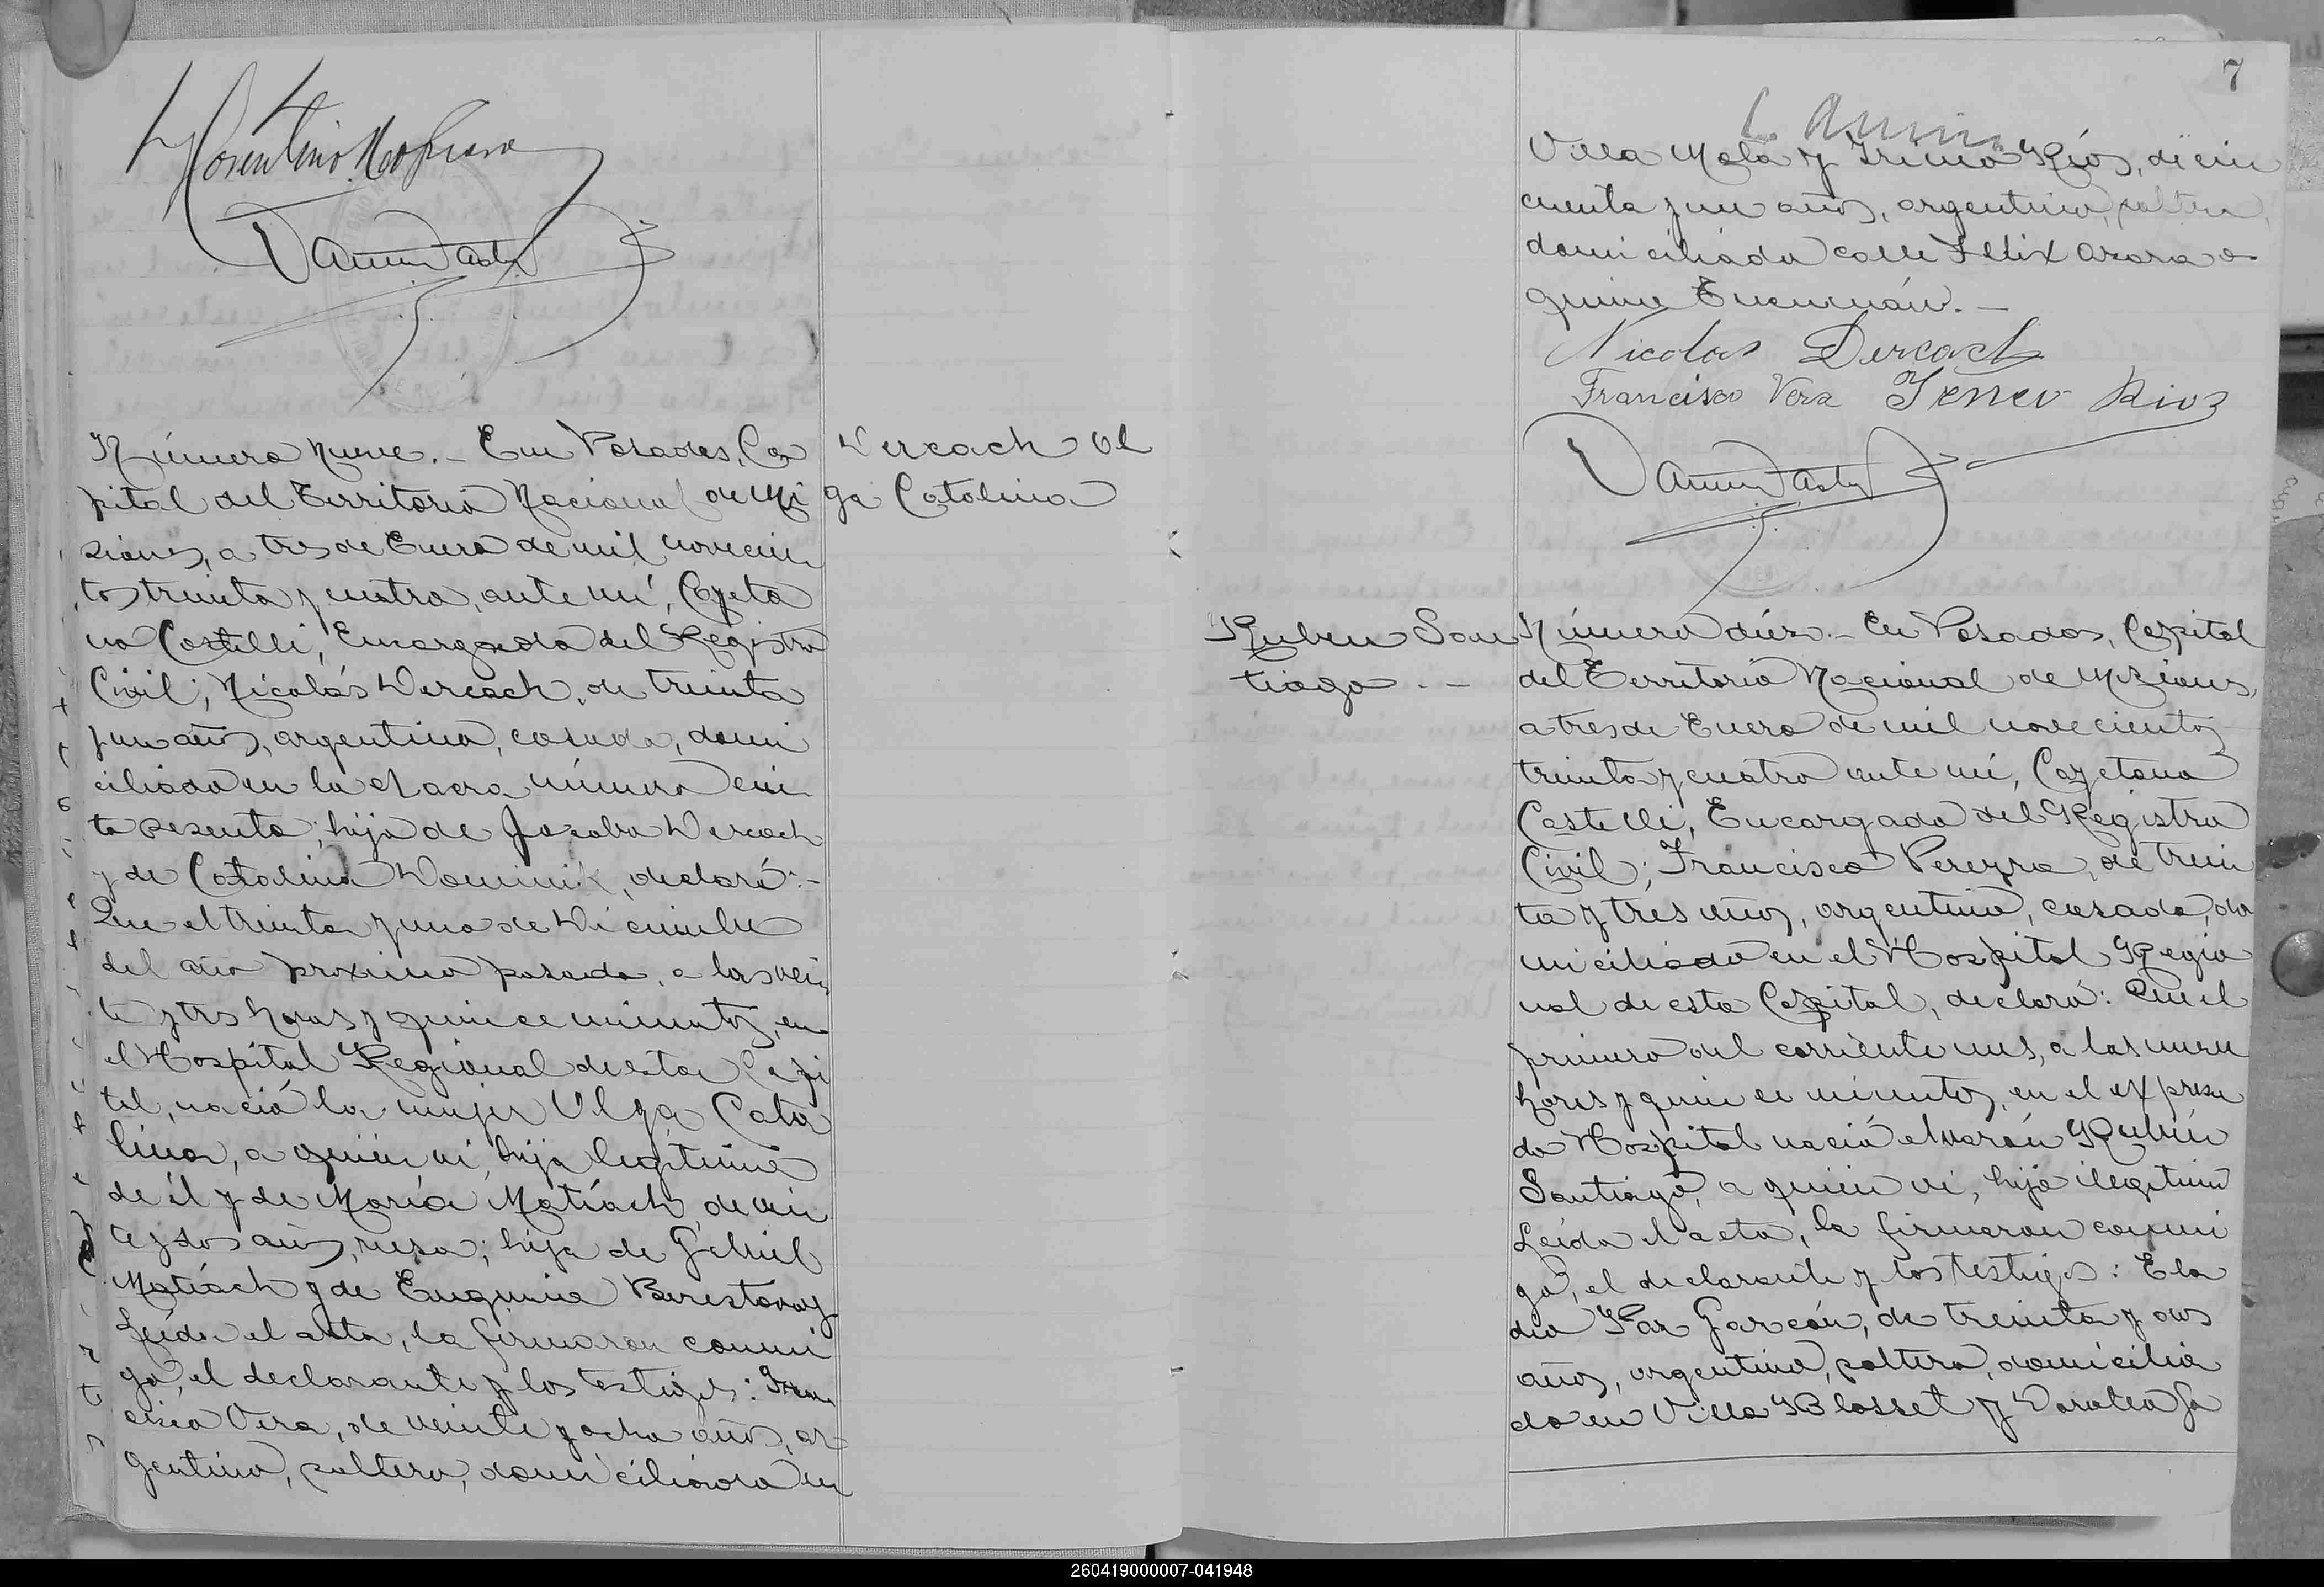 Número Nueve._ En Posadas, Ca
pital del Territorio Nacional de Mi
siones, a tres de Enero de mil novecien
tos treinta y cuatro, ante mí, Cayeta
no Castelli, Encargado del Registro
Civil; Nicolás Dercach, de treinta
y un años, argentino, casado, domi
ciliado en la chacra número cien
to sesenta; hijo de Dercach
y de Catalina Dominik, declaró:-
Que el treinta y uno de Diciembre
del año próximo pasado, a las vein
te y tres horas y quince minutos, en
el Hospital Regional de esta Capi
tal, nació la mujer Olga Cata
lina, a quien vi, hija legítima
de él y de María Matiach, de vein
te y dos años, rusa; hija de
Matiach y de Eugenia
Leída el acta, la firmaron conmi
go, el declarante y los testigos: Fran
cisco Vera, de veinte y ocho años, ar
gentino, soltero, domiciliado en
Dercach Ol
ga Catalina
7
Villa Mola y Ireneo Ríos, de cin
cuenta y un años, argentino, soltero,
domiciliado calle Félix Azara
Nicolas Dercach
Francisco Vera Ireneo Rios
Ruben San
tiago._
Número diez._ En Posadas, Capital
del Territorio Nacional de Misiones,
a tres de Enero de mil novecientos
treinta y cuatro ante mí, Cayetano
Castelli, Encargado del Registro
Civil; Francisco Pereyra, de trein
ta y tres años, argentino, casado, do
miciliado en el Hospital Regio
nal de esta Capital, declaró: Que el
primero del corriente mes, a las nueve
horas y quince minutos, en el expresa
do Hospital nació el varón Rubén
Santiago, a quien vi, hijo ilegítimo
Leída el acta, la firmaron conmi
go, el declarante y los testigos: Ela
dio Garzón, de treinta y dos
años, argentino, soltero, domicilia
do en Villa Blosset y Dorotea
260419000007-041948